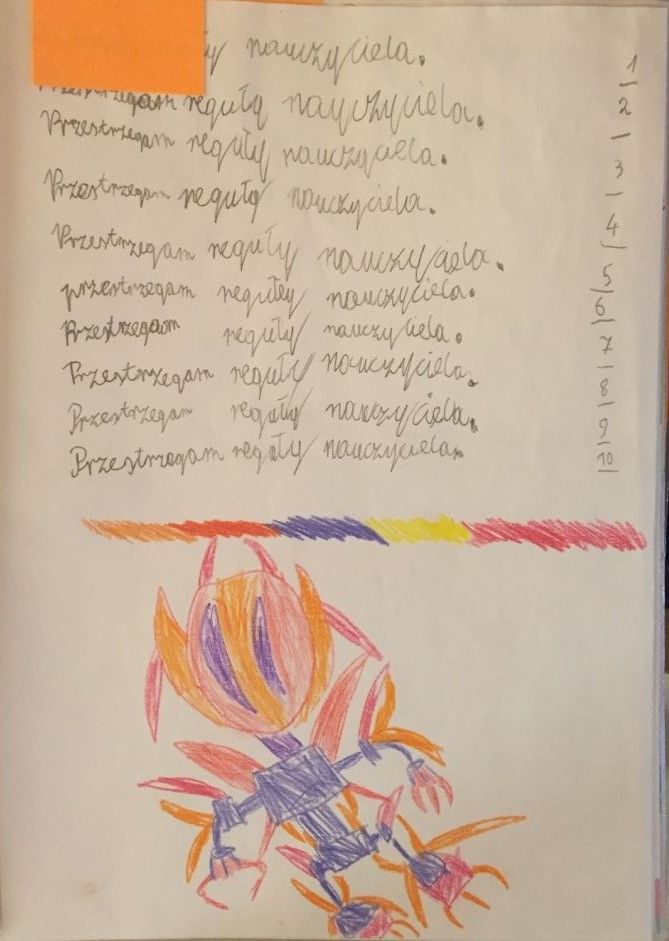 nauczyciela. 1
Przestrzegam reguły nayczyciela. 2
Przestrzegam reguły nauczyciela. 3
Przestrzegam reguły nauczyciela. 4
Przestrzegam reguły nauczyciela. 5
przestrzegam reguły nauczyciela. 6
Przestrzegam reguły nauczyciela. 7
Przestrzegam reguły nauczyciela. 8
Przestrzegam reguły nauczyciela. 9
Przestrzegam reguły nauczyciela. 10